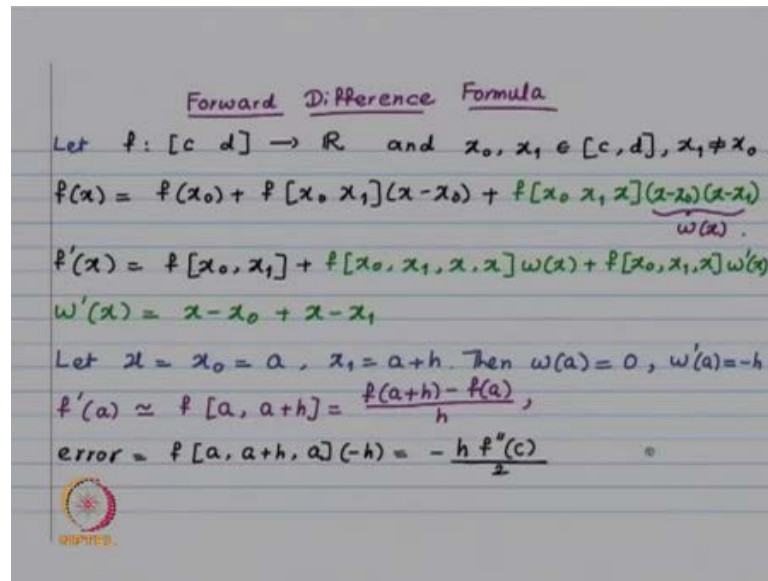 Forward Difference Formula
Let f : [c d] → ℝ and x₀, x₁ ∈ [c, d], x₁ ≠ x₀
f(x) = f(x₀) + f [x₀ x₁](x-x₀) + f[x₀ x₁ x](x-x₀)(x-x₁)
w(x).
f'(x) = f [x₀, x₁] + f[x₀, x₁, x, x] w(x) + f[x₀, x₁, x] w'(x)
w'(x) = x - x₀ + x - x₁
Let x = x₀ = a, x₁ = a+h. Then w(a) = 0, w'(a) = -h
f'(a) ≃ f [a, a+h] = (f(a+h) - f(a))/h,
error = f [a, a+h, a] (-h) = - (h f''(c))/2